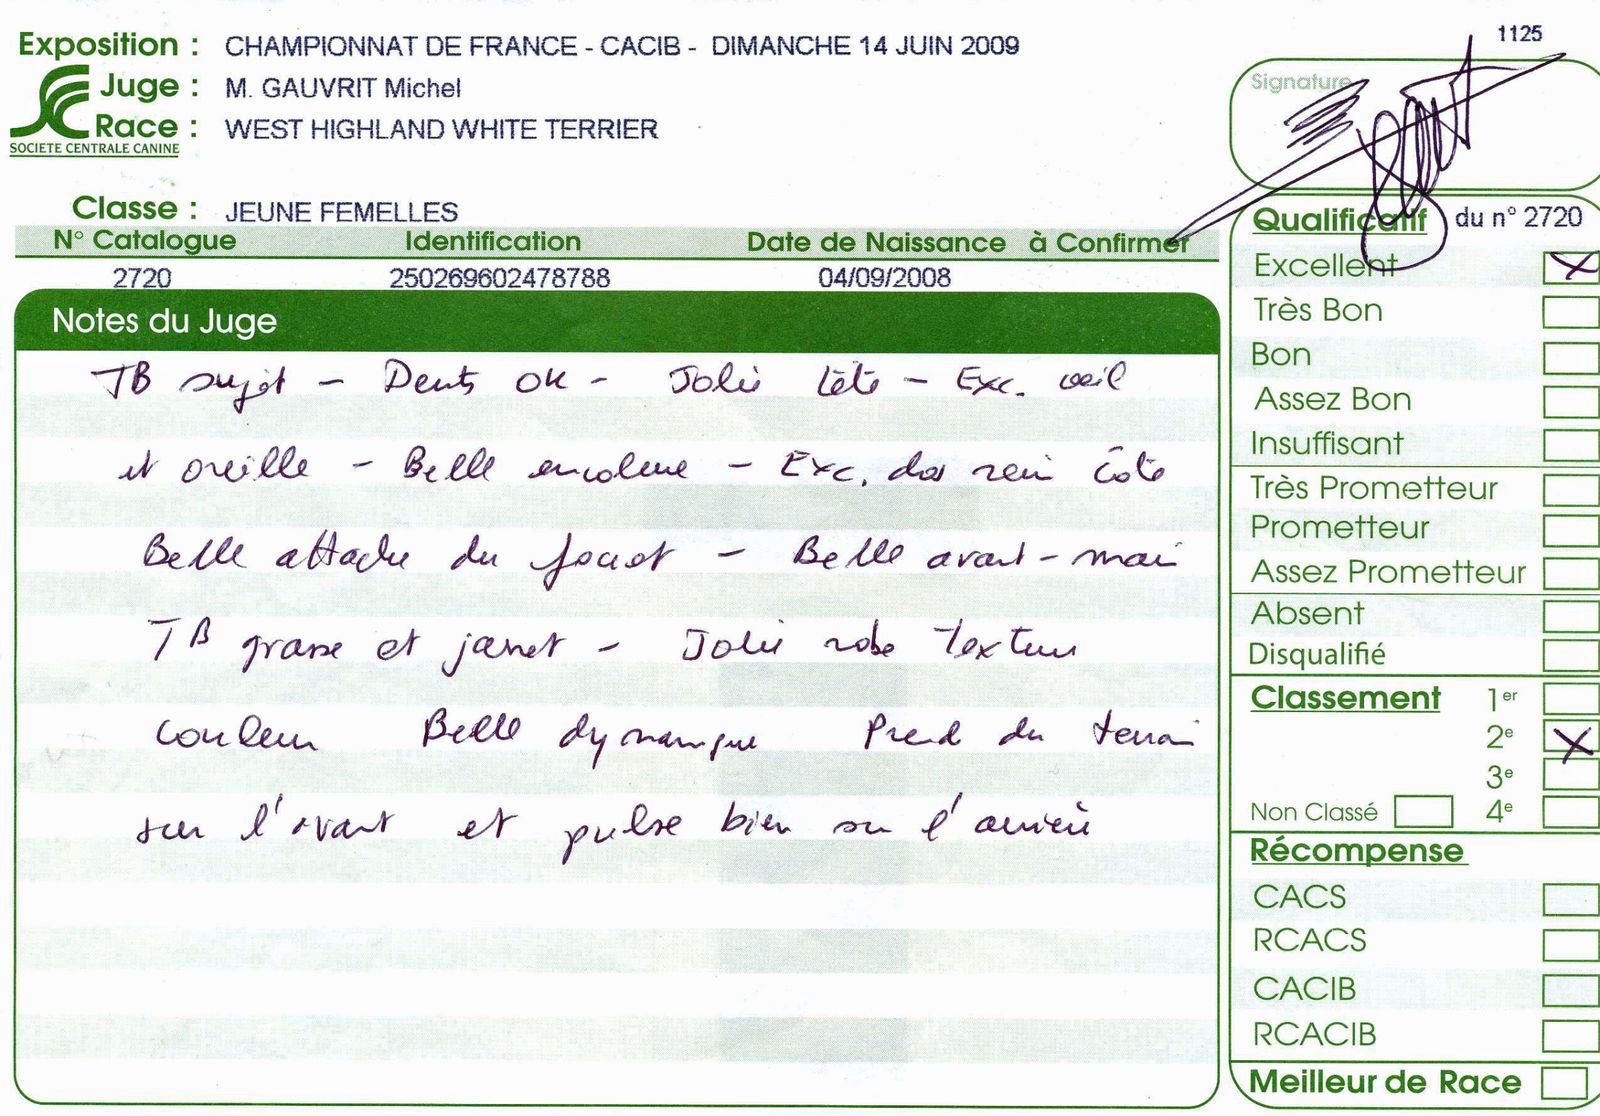 1125
Exposition : CHAMPIONNAT DE FRANCE - CACIB - DIMANCHE 14 JUIN 2009
Juge : M. GAUVRIT Michel
Race : WEST HIGHLAND WHITE TERRIER
SOCIETE CENTRALE CANINE
Classe : JEUNE FEMELLES
N° Catalogue Identification Date de Naissance à Confirmer
2720 250269602478788 04/09/2008
Notes du Juge
TB sujet - Dents OK - Jolie tête - Exc. oeil
et oreille - Belle encolure - Exc. dos rein côte
Belle attache du fouet - Belle avant-main
TB grasse et jarret - Jolie robe texture
couleur Belle dynamique Prend du terrain
sur l'avant et pulse bien sur l'arrière
Signature
Qualificatif du n° 2720
Excellent X
Très Bon
Bon
Assez Bon
Insuffisant
Très Prometteur
Prometteur
Assez Prometteur
Absent
Disqualifié
Classement 1er
2e X
3e
Non Classé 4e
Récompense
CACS
RCACS
CACIB
RCACIB
Meilleur de Race